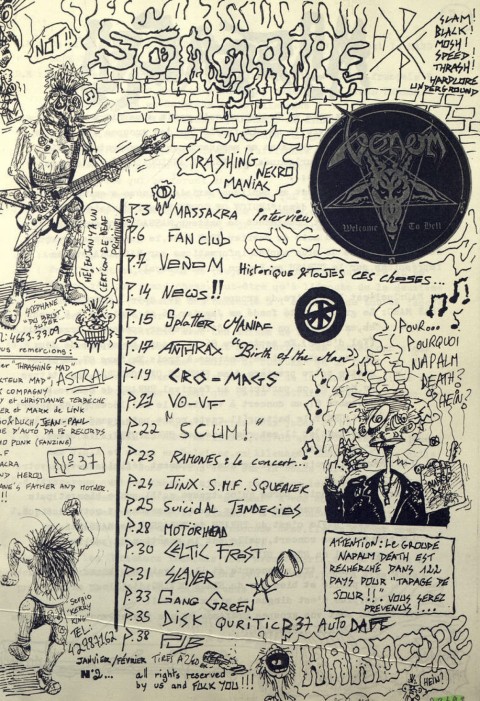 NOT!!
SOMMAIRE
HXC
SLAM!
BLACK!
MOSH!
SPEED!
THRASH!
HARDCORE
UNDERGROUND
VENOM
Welcome To Hell
TRASHING NECRO
MANIAC
P.3 MASSACRA interview
P.6 FAN club
P.7 VENOM Historique & TOUTES CES choses...
P.14 News!!
P.15 Splatter MANIAC
P.17 ANTHRAX "Birth of the Man"
P.19 CRO-MAGS
P.21 VO-VF
P.22 "SCUM!"
P.23 RAMONES: le concert...
P.24 JINX. S.M.F. SQUEALER
P.25 Suicidal TENDECIES
P.28 MOTÖRHEAD
P.30 CELTIC FROST
P.31 SLAYER
P.33 GANG GREEN
P.35 DISK QURITIC P.37 AUTO DAFE
P.38 PUB
HÉ! BEN J'N Y A UN
STEPHANE
DU BRUIT!
SUPER
: 4663.33.09
us remercions:
er "THRASHING MAD"
CTEUR MAD", ASTRAL
S COMPAGNY
Y et CHRISTIANNE TERBECHE
ER et MARX de LINK
O&DUCH, JEAN-PAUL
E D'AUTO DA FE RECORDS
D PUNK (FANZINE)
LF
SACRA
AND HEROU
ANE'S FATHER AND MOTHER.
!!!
N° 37
POUR...
POURQUOI
NAPALM
DEATH?
HEIN?
ATTENTION: Le GROUPE
NAPALM DEATH EST
RECHERCHÉ DANS 122
PAYS POUR "TAPAGE DE
JOUR!!" VOUS SEREZ
PREVENUS!...
Sergio
"KERRY
KING"
TEL:
42987162
JANVIER/FÉVRIER TIREJ A240
N°2... all rights reserved
by us and FUCK YOU!!!
HARDCORE
HEIN?